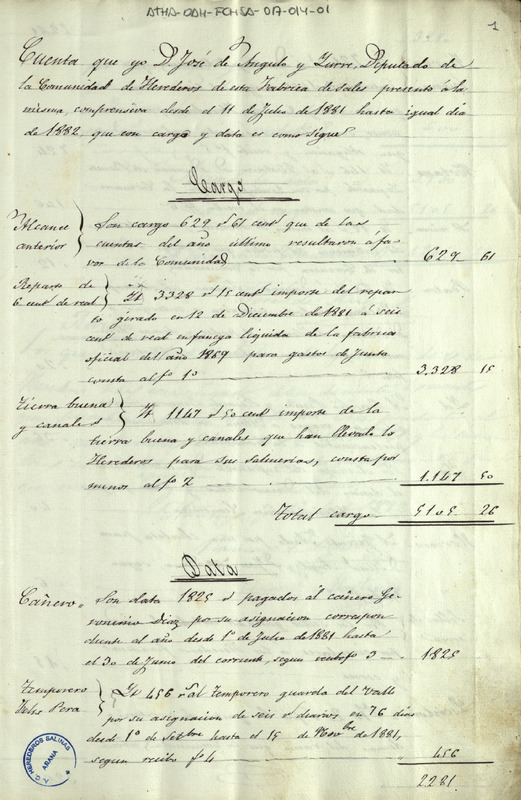 ATHA-DAH-FCHSA-017-014-01
1
Cuenta que yo D. José de Angulo y Yurre, Deputado de
la Comunidad de Herederos de esta Fabrica de Sales presento á la
misma, comprensiva desde el 11 de Julio de 1881 hasta igual dia
de 1882, que con cargo y data es como sigue
Cargo
Alcance anterior } Son cargo 629 rs 61 cents que de las
cuentas del año último resultaron á fa-
vor de la Comunidad 629 61
Reparto de 6 cents de real } Yt 3328 rs 15 cents importe del repar-
to girado en 12 de Diciembre de 1881 á seis
cents de real en fanega liquida de la fabrica
oficial del año 1869 para gastos de Junta
consta al fo 1o 3.328 15
Tierra buena y canales } Yt 1147 rs 50 cents importe de la
tierra buena y canales que han llevado lo
Herederos para sus salinerias, consta por
menos al fo 2 1.147 50
Total cargo 5105 26
Data
Cañero Son data 1825 rs pagados al cañero Ge-
ronimo Diaz por su asignacion correspon-
diente al año desde 1o de Julio de 1881 hasta
el 30 de Junio del corriente segun recibo fo 3 1825
Temporero Felix Pera } Yt 456 rs al temporero guarda del Valle
por su asignacion de seis rs diarios en 76 dias
desde 1o de Setbre hasta el 15 de Novbre de 1881,
segun recibo fo 4 456
2281
HEREDEROS SALINAS
AÑANA